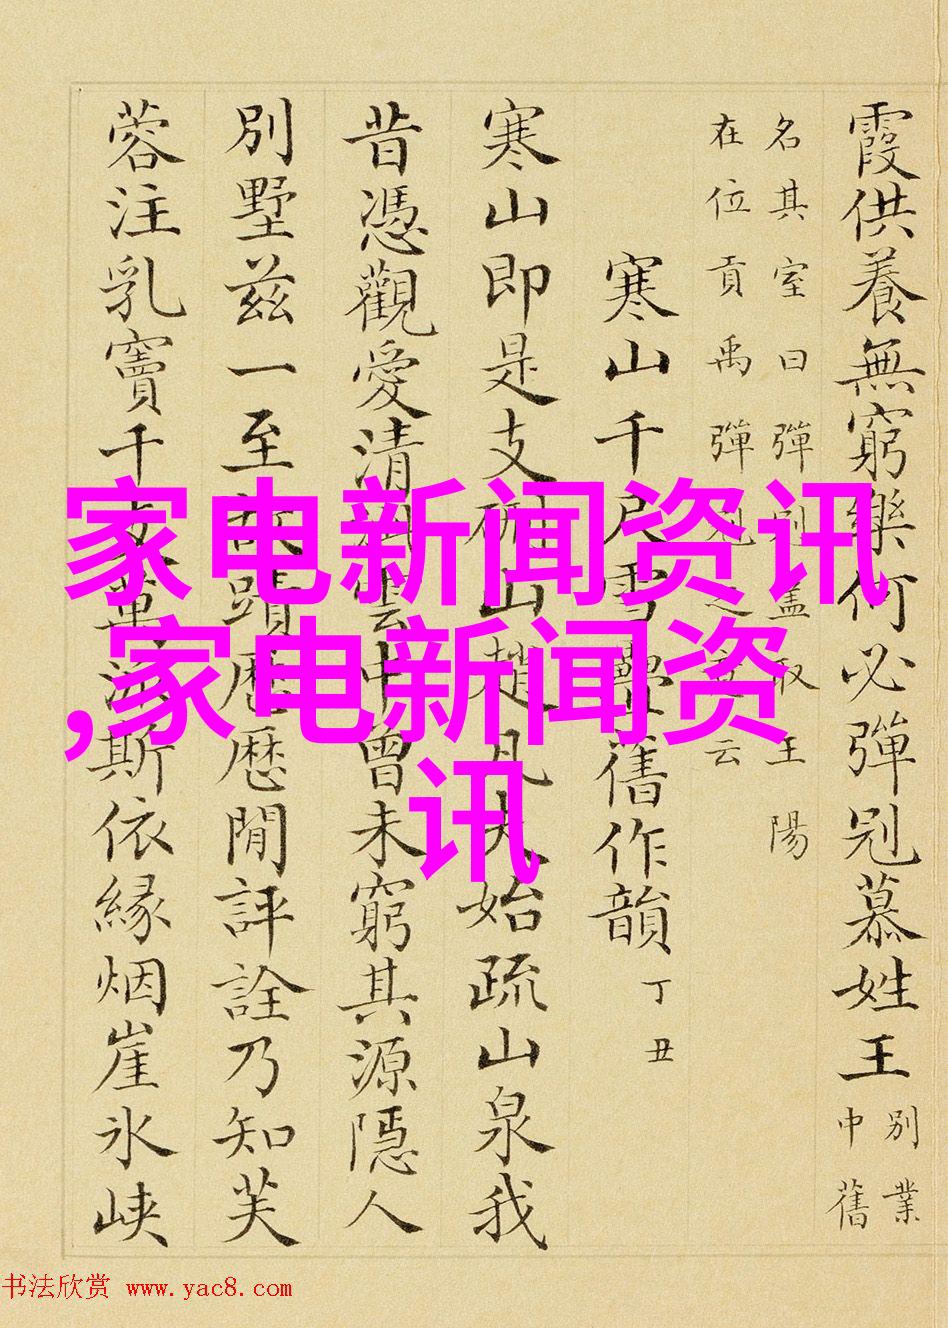 霞供養無窮樂何必彈冠慕姓王
別業
中舊
名其室曰彈冠蓋取王陽
在位貢禹彈冠之云
寒山千尺雪疊舊作韻
丁丑
寒山即是支硎山趙凡夫始疏山泉我
昔憑觀愛清雲中曾未窮其源隱人
別墅兹一至故蹟歷歷閒評詮乃知芙
蓉注乳竇千斯依緣烟崖氷峡
家电新闻资讯
,家电新闻资
讯
书法欣赏 www.yac8.com